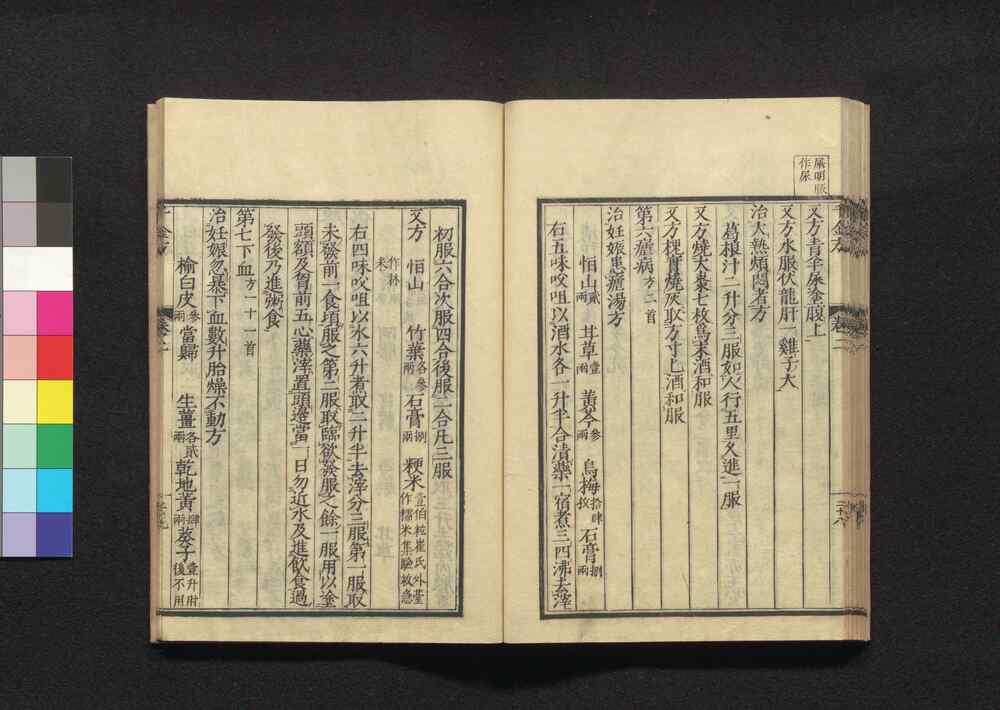 屎明版
作尿
又方青羊屎塗腹上
又方水服伏龍肝一雞子大
治大熱煩悶者方
葛根汁二升分三服如人行五里久進一服
又方燒大棗七枚爲末酒和服
又方槐實燒灰取方寸匕酒和服
第六瘧病方二首
治妊娠患瘧湯方
恒山貳兩 甘草壹兩 黃芩參兩 烏梅拾肆枚 石膏捌兩
右五味㕮咀以酒水各一升半合漬藥一宿煮三四沸去滓
初服六合次服四合後服二合凡三服
又方 恒山 竹葉各參兩 石膏捌兩 粳米壹伯粒崔氏外臺作糯米集驗救急作秫米
右四味㕮咀以水六升煮取二升半去滓分三服第一服取
未發前一食頃服之第二服取臨欲發服之餘一服用以塗
頭額及胷前五心藥滓置頭邊當一日勿近水及進飲食過
發後乃進粥食
第七下血方一十一首
治妊娠忽暴下血數升胎燥不動方
榆白皮參兩 當歸 生薑各貳兩 乾地黃肆兩 葵子壹升肘後不用